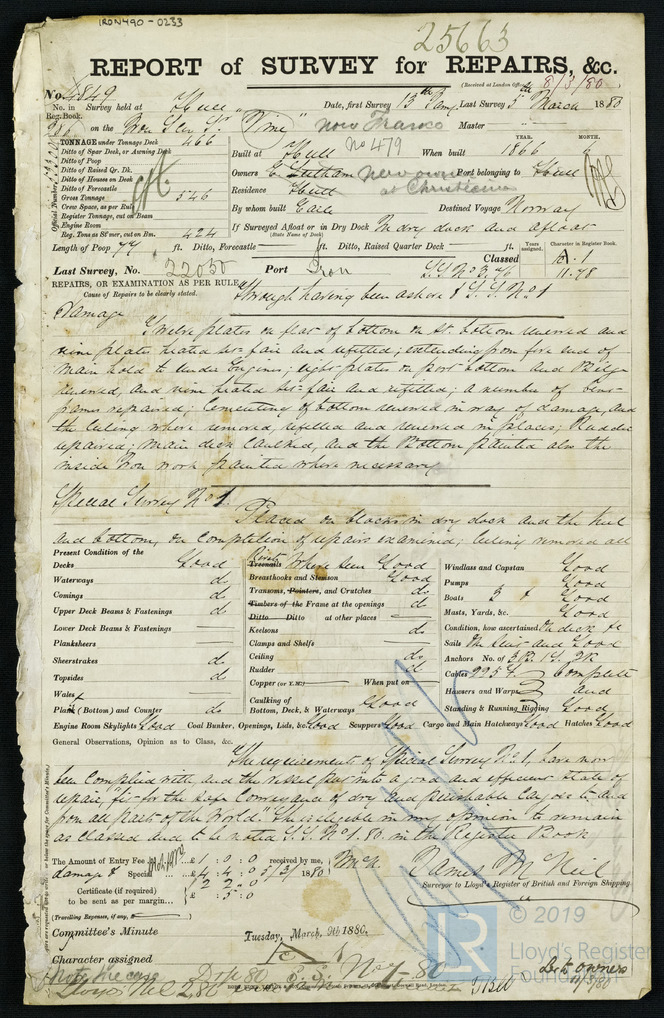 IRON490-0233
25663
REPORT of SURVEY for REPAIRS, &c.
(Received at London Office 8/3/80)
No. 4849
No. in Survey held at Hull Date, first Survey 13th Jany. Last Survey 5th March 1880
Reg. Book.
on the Iron Scr Sr. "Tyne" now Franco Master
No 479
TONNAGE under Tonnage Deck 466
Ditto of Spar Deck, or Awning Deck
Ditto of Poop
Ditto of Raised Qr. Dk.
Ditto of Houses on Deck
Ditto of Forecastle
Gross Tonnage 546
Crew Space, as per Rule
Register Tonnage, cut on Beam
Engine Room
Reg. Tons as Str., cut on Bm. 424
Built at Hull When built YEAR. 1866 MONTH. 6
Owners now owned Port belonging to Hull
Residence Hull at Christiania
By whom built Earle Destined Voyage Norway
If Surveyed Afloat or in Dry Dock In dry dock and afloat
(State Name of Dock)
Length of Poop 77 ft. Ditto, Forecastle ft. Ditto, Raised Quarter Deck ft.
Years assigned. Character in Register Book.
Classed
11.78
Last Survey, No. 22050 Port Iron S.S. No 3. 76
REPAIRS, OR EXAMINATION AS PER RULE through having been ashore & S.S. No 1
Cause of Repairs to be clearly stated.
Damage
Twelve plates on flat of bottom on St. bottom renewed and
nine plates heated set fair and refitted; extending from fore end of
main hold to under Engines; eight plates on port bottom and Bilge
renewed, and nine heated set fair and refitted; a number of
repaired; Cementing of bottom renewed in way of damage, and
the Ceiling where removed, refitted and renewed in places; Rudder
repaired; main deck Caulked, and the Bottom painted also the
inside Iron work painted where necessary
Special Survey No 1.
Placed on blocks in dry dock and the keel
and bottom, on completion of repairs examined; Ceiling removed all
Present Condition of the
Decks Good
Waterways do
Comings do
Upper Deck Beams & Fastenings do
Lower Deck Beams & Fastenings
Planksheers
Sheerstrakes do
Topsides do
Wales
Plank (Bottom) and Counter do
Rivets
Treenails Where seen Good
Breasthooks and Stemson Good
Transoms, Pointers, and Crutches do
Timbers of the Frame at the openings do
Ditto Ditto at other places
Keelsons do
Clamps and Shelfs
Ceiling do
Rudder do
Copper (or Y.M.) When put on
Caulking of
Bottom, Deck, & Waterways Good
Windlass and Capstan Good
Pumps Good
Boats 3 Good
Masts, Yards, &c. Good
Condition, how ascertained On deck &c
Sails and Good
Anchors No. of 3B. 1S. 2K
Cables Complete
Hawsers and Warps and
Standing & Running Rigging Good
Engine Room Skylights Good Coal Bunker, Openings, Lids, &c. Good Scuppers Good Cargo and Main Hatchways Good Hatches Good
General Observations, Opinion as to Class, &c.
The requirements of Special Survey No 1, have now
been Complied with, and the vessel put into a good and efficient state of
repair, "fit for the safe Conveyance of dry and perishable Cargoes to and
from all parts of the World." She is eligible in my opinion to remain
as Classed and to be noted S.S. No 1. 80. in the Register Book
The Amount of Entry Fee £ 1 : 0 : 0 received by me,
damage & Special £ 4 : 4 : 0 5/3/1880
2 2 0
Certificate (if required) £ : 5 : 0
to be sent as per margin
(Travelling Expenses, if any, £ )
James McNeil
Surveyor to Lloyd's Register of British and Foreign Shipping
Committee's Minute Tuesday, March, 9th 1880.
Character assigned
No 1-80
Lr to owners
11/3/80
© 2019
Lloyd's Register
Foundation